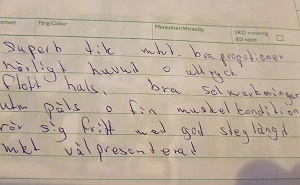 Färg/Colour Mentalitet/Mentality SRD notering
BSI notes
Superb tik mkt. bra propotioner
härligt huvud o uttryck
flott hals, bra sel markeringar
utm päls o fin muskelkondition
rör sig fritt med god steglängd
mkt välpresenterad